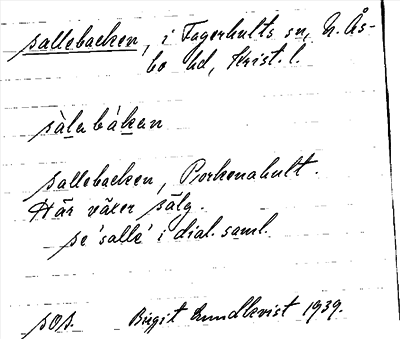 sallebacken, i Fagerhults sn, N. Ås-
bo hd, Krist. l.
sàlabákan
sallebacken, Porkenahult.
Här växer sälg.
se 'salle' i dial. saml.
sos. Birgit Lundkvist 1939.